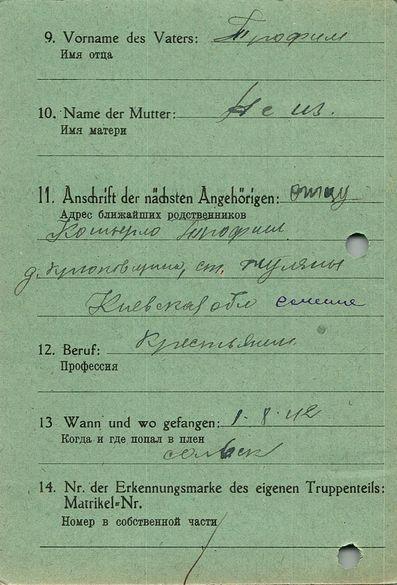 9. Vorname des Vaters: Трофим
Имя отца
10. Name der Mutter: Не из.
Имя матери
11. Anschrift der nächsten Angehörigen: отцу
Адрес ближайших родственников
Трофим
ст. Жуляны
Киевская обл
12. Beruf: Крестьянин
Профессия
13 Wann und wo gefangen: 1-8-42
Когда и где попал в плен
Сальск
14. Nr. der Erkennungsmarke des eigenen Truppenteils:
Matrikel-Nr.
Номер в собственной части